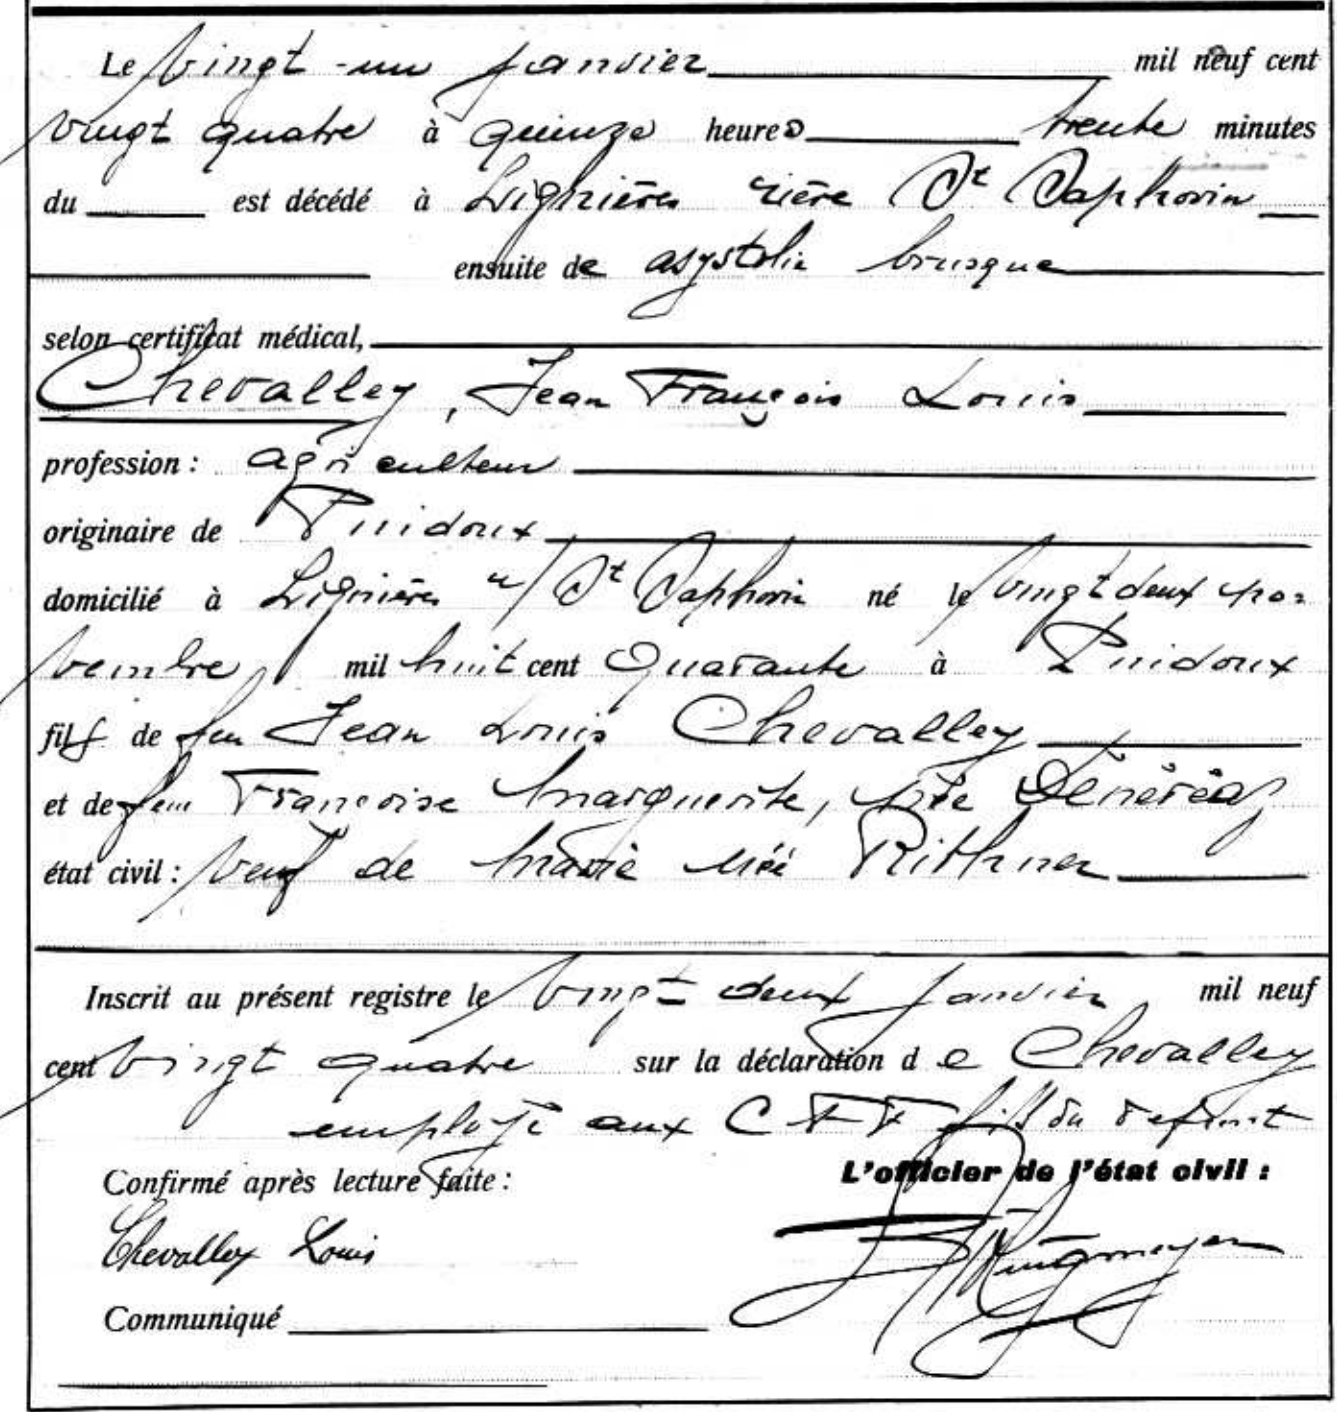 Le vingt-un janvier mil neuf cent
vingt quatre à quinze heures trente minutes
du est décédé à Lignières rière St Saphorin
ensuite de asystolie brusque
selon certificat médical,
Chevalley, Jean François Louis
profession : agriculteur
originaire de Puidoux
domicilié à Lignières s/ St Saphorin né le vingt deux no-
vembre mil huit cent quarante à Puidoux
fils de feu Jean Louis Chevalley
et de feu Françoise Marguerite, née Dénéréaz
état civil : veuf de Marie née Rithner
Inscrit au présent registre le vingt deux janvier mil neuf
cent vingt quatre sur la déclaration de Chevalley
employé aux CFF fils du défunt
Confirmé après lecture faite : L'officier de l'état civil :
Chevalley Louis
Communiqué